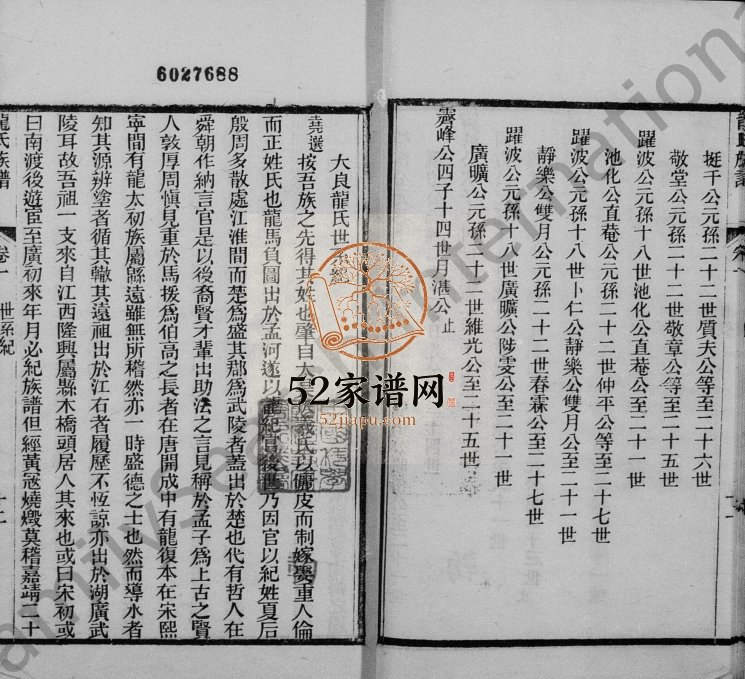 6027688
龍氏族譜
挺千公元孫二十二世質夫公等至二十六世
敬堂公元孫二十二世敬章公等至二十五世
躍波公元孫十八世池化公直菴公至二十一世
池化公直菴公元孫二十二世仲平公等至二十七世
躍波公元孫十八世卜仁公靜樂公雙月公至二十一世
靜樂公雙月公元孫二十二世春霖公至二十七世
躍波公元孫十八世廣曠公陟雯公至二十一世
廣曠公元孫二十二世維光公至二十五世
霽峰公四子十四世月湛公止
大良龍氏世
堯選
按吾族之先得其姓也肇自太
氏以儷皮而制嫁娶重人倫
而正姓氏也龍馬負圖出於孟河遂以龍紀官後世乃因官以紀姓夏后
殷周多散處江淮間而楚爲盛其郡爲武陵者蓋出於楚也代有哲人在
舜朝作納言官是以後裔賢才輩出助法之言見稱於孟子爲上古之賢
人敦厚周慎見重於馬援爲伯高之長者在唐開成中有龍復本在宋熙
寧間有龍太初族屬緜遠雖無所稽然亦一時盛德之士也然而導水者
知其源辨塗者循其轍其遠祖出於江右者履歷不恆諒亦出於湖廣武
陵耳故吾祖一支來自江西隆興屬縣木橋頭居人其來也或曰宋初或
曰南渡後遊臣至廣初來年月必紀族譜但經黃寇燒燬莫稽嘉靖二十
龍氏族譜
卷一
世系紀
十二
52家谱网
52jiapu.com
familysearch International